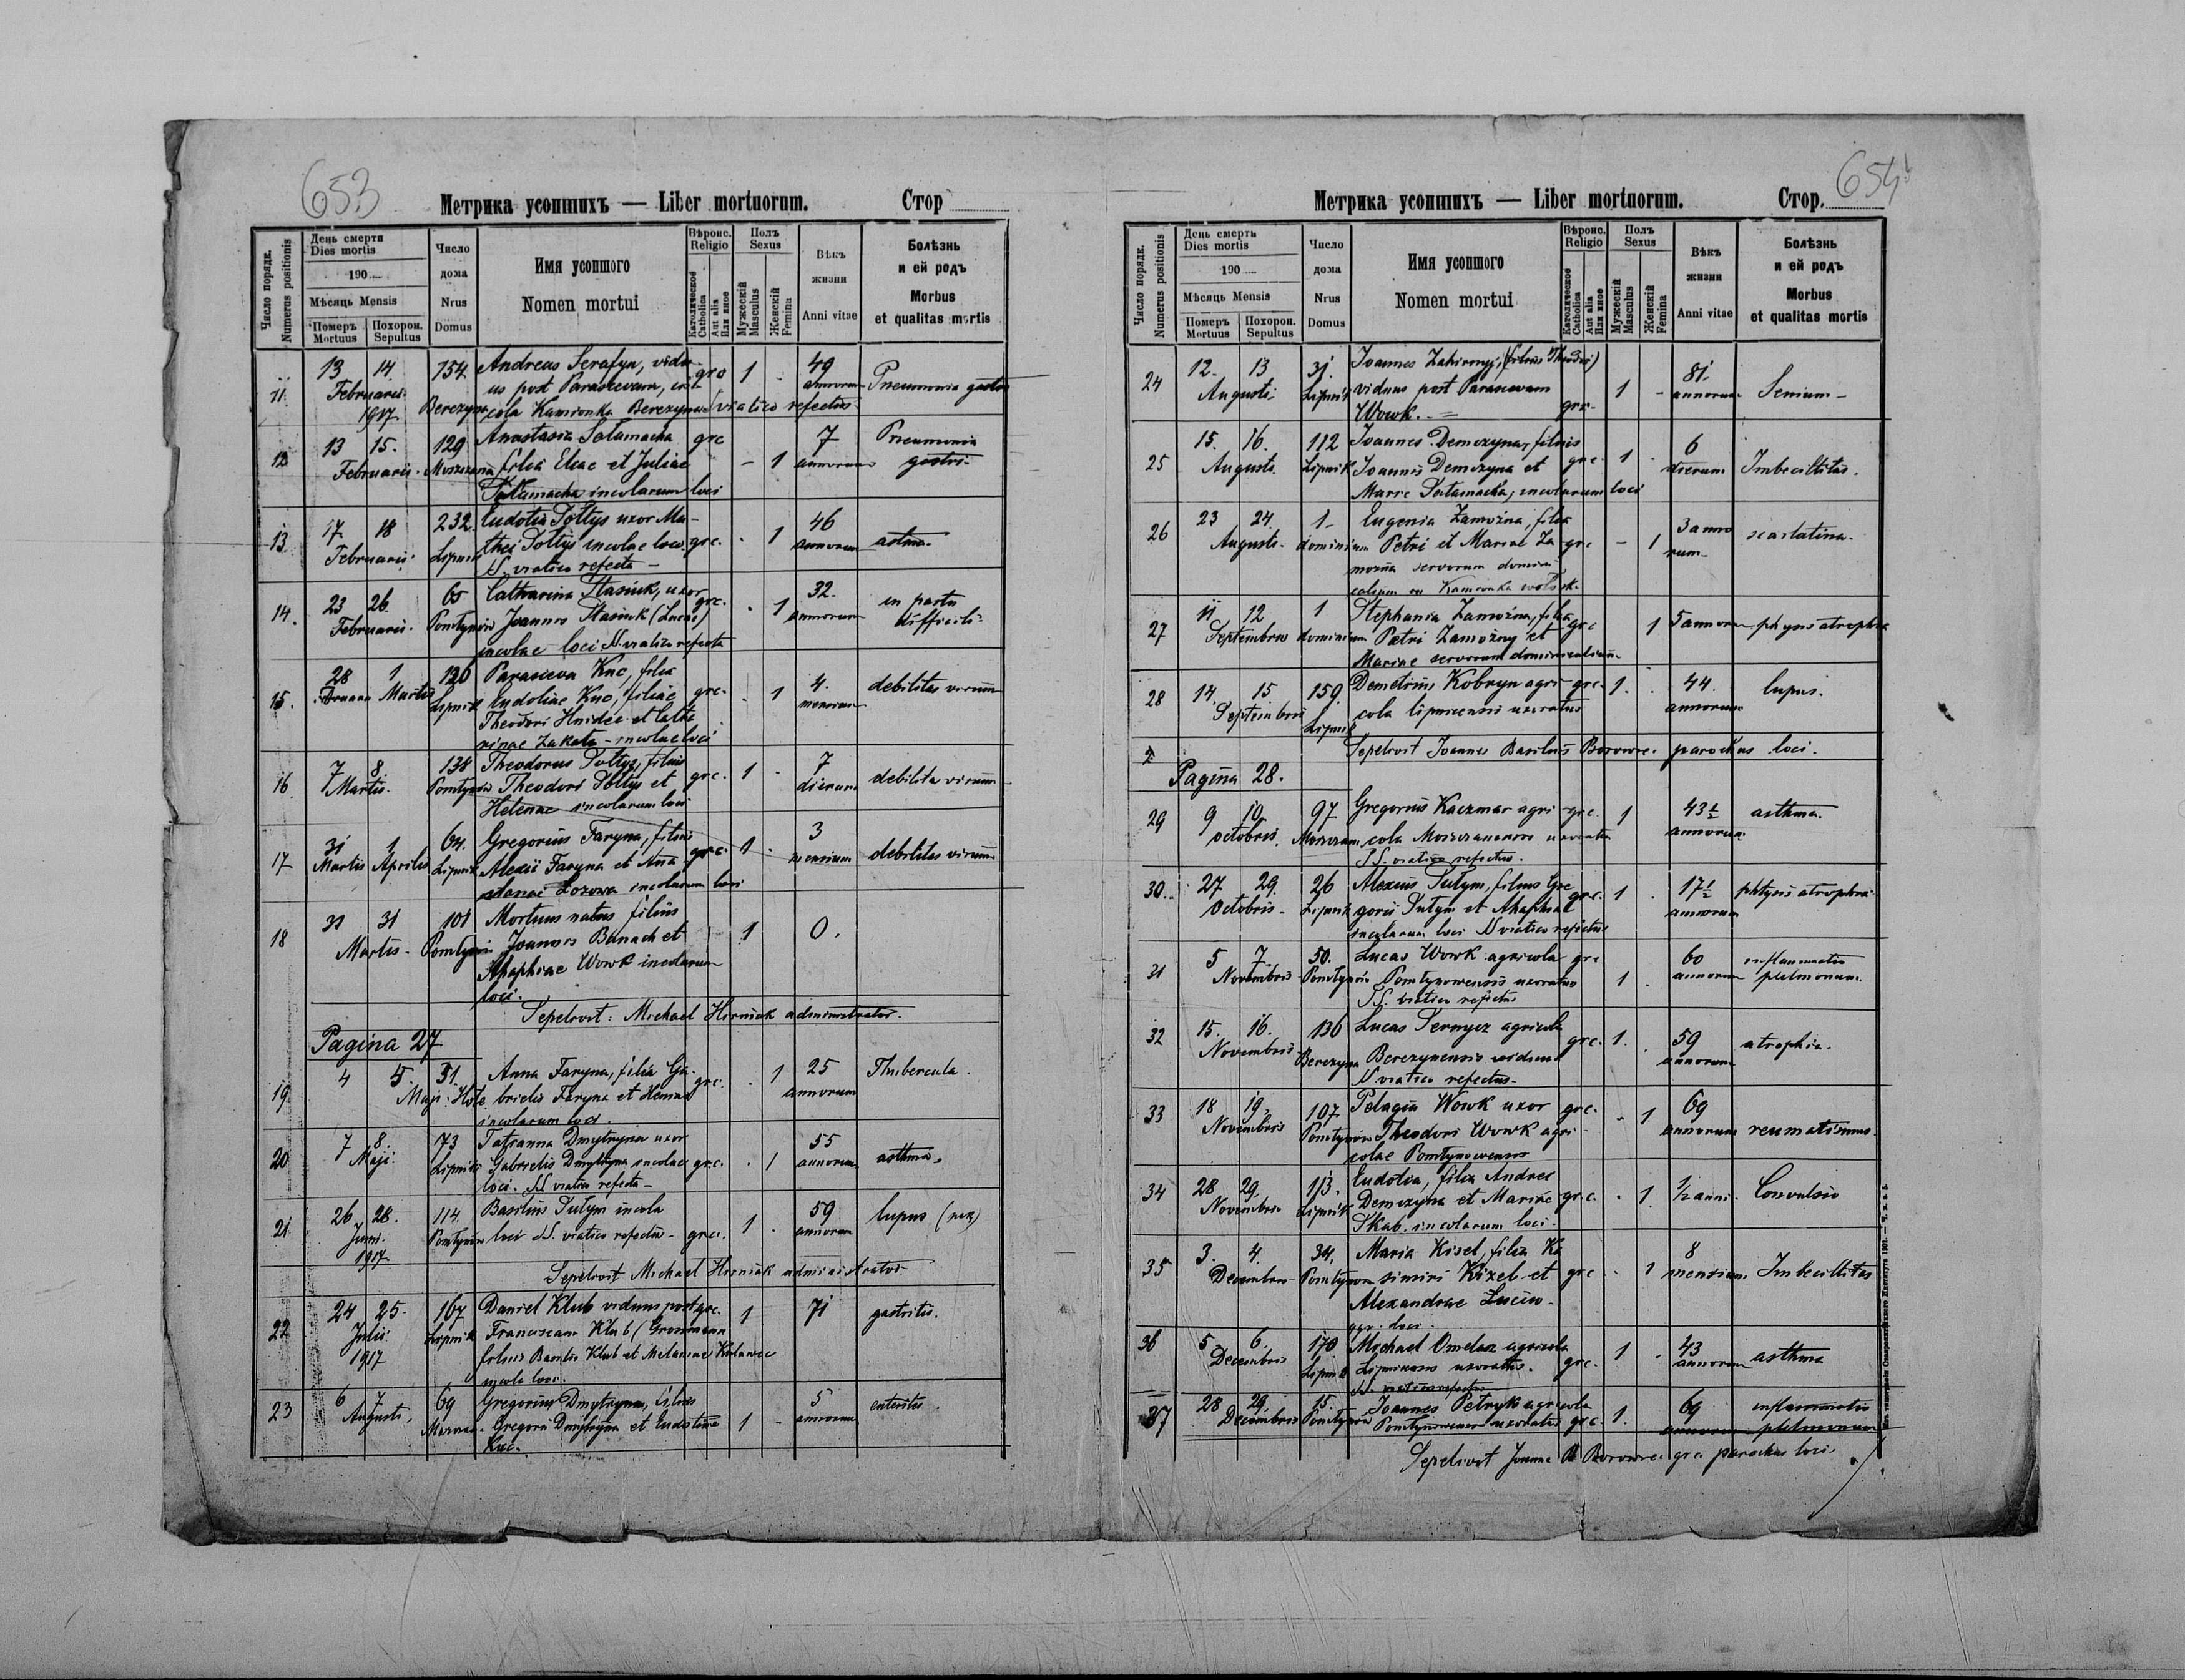 653
Метрика усопшихъ — Liber mortuorum. Стор
Число порядк. Numerus positionis
День смерти Dies mortis
190
Мѣсяць Mensis
Померъ Mortuus
Похорон. Sepultus
Число дома Nrus Domus
Имя усопшого
Nomen mortui
Вѣроис. Religio
Католическое Catholica
Aut alia Или иное
Полъ Sexus
Мужескій Masculus
Женскій Femina
Вѣкъ жизни Anni vitae
Болѣзнь и ей родъ Morbus et qualitas mortis
11 13 14 154 Andreas Serafyn, vidu- grc 1 49
Februarii us post Parascevam, annorum Pneumonia
1917 Berezyna cola Kamionka viatico refectus
12 13 15. 129 Anastasia Sałamacha grc - 1 7 Pneumonia
Februarii. filia Eliae et Juliae annorum gastri-
Sałamacha incolarum loci
13. 17 18 232 Eudotia Sołtys uxor Ma- 46
Februarii Lipnik thei Sołtys incolae loci grc. 1 annorum astma.
SS. viatico refecta -
14. 23 26. 65 Catharina Stasiuk, uxor grc. 1 32. in partu
Februarii. Pomtynow Joannis Stasiuk (Lucae) annorum difficili
incolae loci SS. viatico refecta
15. 28 1 126 Parasceva Kuc, filia
Martii Lipnik Eudotiae Kuc, filiae grc. 1 4. debilitas virium
Theodori Hnidec et Catha mensium
rinae Zakała - incolae loci
16 7 8 134 Theodorus Sołtys, filius 7
Martii. Pomtynow Theodori Sołtys et grc. 1 dierum debilita virium
Helenae incolarum loci
17 31 1 64. Gregorius Faryna, filius 3
Martii Aprilis Lipnik Alexii Faryna et Ana- grc. 1 mensium debilitas virium
Łozowa incolarum loci
18 31 31 101 Mortuus natus filius 1 0.
Martii - Joannis Banach et
Ahaphiae Wowk incolarum
loci.
Sepelivit: Michael Horniak administrator.
Pagina 27
19 4 5. 31. Anna Faryna, filia Ga- grc. 1 25 Thubercula.
Maji brielis Faryna et annorum
incolarum loci.
20 7 8. 73 Tatianna Dmytryna uxor 55
Maji. Lipnik Gabrielis Dmytryna incolae grc. 1 annorum asthma.
loci. SS viatico refecta -
21 26 28. 114. Basilius Sutym incola 59 lupus (rak)
Junii Pomtynow loci SS. viatico refectus - grc. 1 annorum
1917.
Sepelivit Michael Horniak administrator
22 24 25 167 Daniel Klub viduus post grc. 1 71 gastritis.
Julii Lipnik Franciscam Klub (Grosmann
1917 filius Basilii Klub et Melaniae
incola loci.
23 6 7 69 Gregorius Dmytryna, filius 5 enteritis.
Augusti, Gregorii Dmytryna et 1 annorum
Kuc.
654
Метрика усопшихъ — Liber mortuorum. Стор.
Число порядк. Numerus positionis
День смерти Dies mortis
190
Мѣсяць Mensis
Померъ Mortuus
Похорон. Sepultus
Число дома Nrus Domus
Имя усопшого
Nomen mortui
Вѣроис. Religio
Католическое Catholica
Aut alia Или иное
Полъ Sexus
Мужескій Masculus
Женскій Femina
Вѣкъ жизни Anni vitae
Болѣзнь и ей родъ Morbus et qualitas mortis
24 12. 13 31. Joannes Zahirnyj, (filius Theodori) 81
Augusti. Lipnik viduus post Parascevam 1 - annorum Senium -
Wowk. - grc-
25 15. 16. 112 Joannes Demczyna, filius 6
Augusti. Lipnik Joannis Demczyna et grc. 1 dierum Imbecillitas.
Marie Sałamacha, incolarum loci
26 23 24. 1 Eugenia Zamożna, filia 3 anno
Augusti. dominium Petri et Mariae Za grc - 1 rum - scarlatina.
można servorum domini
calium in Kamionka wołosk.
27 11 12 1 Stephania Zamożna, filia grc 1 5 annorum
Septembris dominium Petri Zamożny et
Mariae servorum dominicalium
28 14. 15 159. Demetrius Kobryn agri- grc. 1. 44. lupus.
Septembris Lipnik cola lipnicensis uxoratus annorum
Sepelivit Joannes Basilius parochus loci.
Pagina 28.
29 9 10 97 Gregorius Kaczmar agri- grc. 1 43½ asthma.
octobris. cola uxoratus annorum
SS. viatico refectus.
30. 27 29. 26 Alexius Sutym, filius Gre grc. 1 17½ phtysis atrophia
Octobris - Lipnik gorii Sutym et Ahaphiae annorum
incolarum loci SS viatico refectus
31 5 7. 50. Lucas Wowk agricola grc 60 inflammatio
Novembris Pomtynow Pomtynowensis uxoratus 1 annorum pulmonum.
SS. viatico refectus
32 15. 16. 136 Lucas Sernycz agricola grc. 1. 59 atrophia.
Novembris Berezyna Berezynensis viduus annorum
SS viatico refectus -
33 18 19. 107 Pelagia Wowk uxor grc. - 1 69
Novembris Pomtynow Theodori Wowk agri- annorum reumatismus.
colae Pomtynowensis
34 28 29. 113. Eudotia, filia Andreae
Novembris Lipnik Demczyna et Mariae grc. 1 ½ anni. Convulsio
Skab. incolarum loci.
35 3. 4. 34. Maria Kisel, filia Ka 8
Decembris Pomtynow simiri Kizel et grc - 1 mensium Imbecillitas
Alexandrae
loci.
36 5 6. 170 Michael Omelan agricola 1 43 asthma
Decembris Lipnik Lipnicensis uxoratus. grc. annorum
SS. viatico refectus
37 28 29. 15. Joannes Petryk agricola 69 inflammatio
Decembris Pomtynow Pomtynowensis uxoratus grc. 1. annorum pulmonum
Sepelivit Joannes B. grc. parochus loci